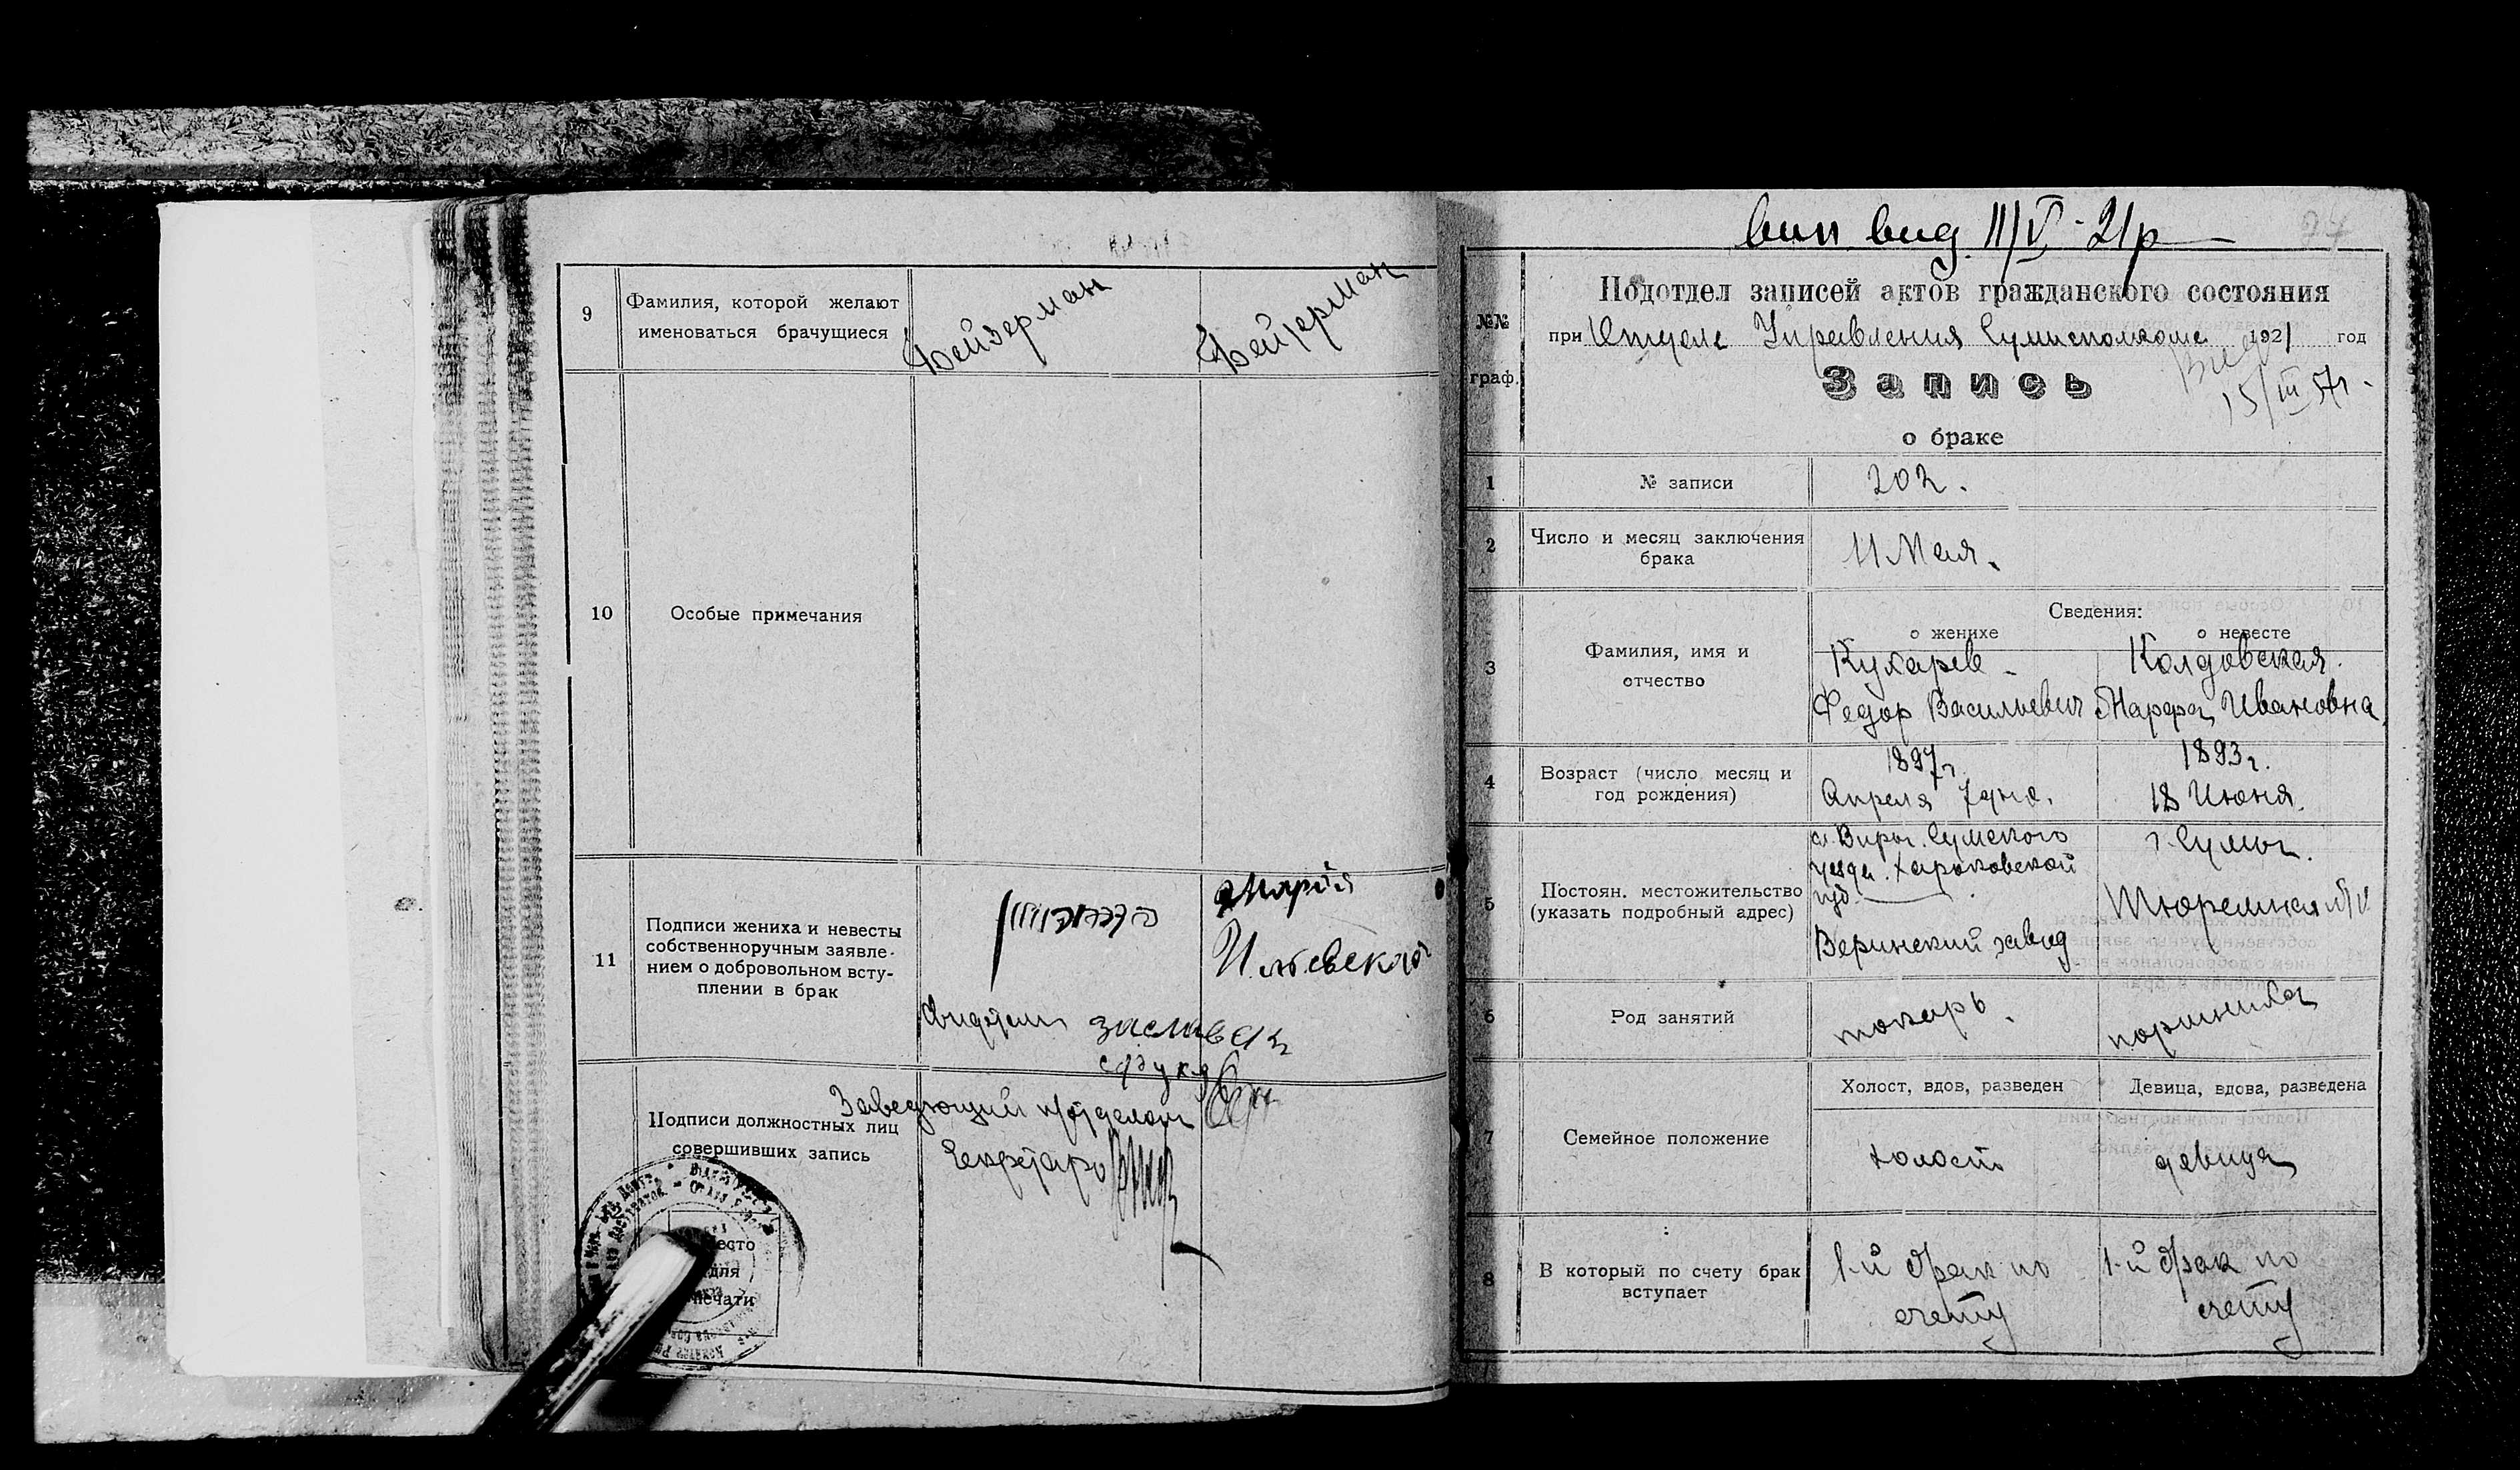 9
Фамилия, которой желают
именоваться брачущиеся
Фейзерман
Фейзерман
10
Особые примечания
11
Подписи жениха и невесты
собственноручным заявле-
нием о добровольном всту-
плении в брак
Мария
Заславск
Заведующий п/отделом
Подписи должностных лиц
совершивших запись
Секретарь
Место
для
печати
вип. вид. 11/V-21р
Подотдел записей актов гражданского состояния
№№
граф.
при Отделе Управления Сумисполкома 1921 год
Вид
15/III 57г.
Запись
о браке
1
№ записи
202.
2
Число и месяц заключения
брака
11 Мая.
Сведения:
о женихе
о невесте
3
Фамилия, имя и
отчество
Кухарев
Федор Васильевич
Колдовская.
Марфа Ивановна
4
Возраст (число месяц и
год рождения)
1897г.
Апреля 7 дня.
1893г.
18 Июня.
5
Постоян. местожительство
(указать подробный адрес)
с. Виры. Сумского
уезда. Харьковской
губ.
Веринский завод
г. Сумы.
Тюремная
6
Род занятий
токарь.
портниха
7
Семейное положение
Холост, вдов, разведен
Девица, вдова, разведена
холост.
девица
8
В который по счету брак
вступает
1-й брак по
счету
1-й брак по
счету